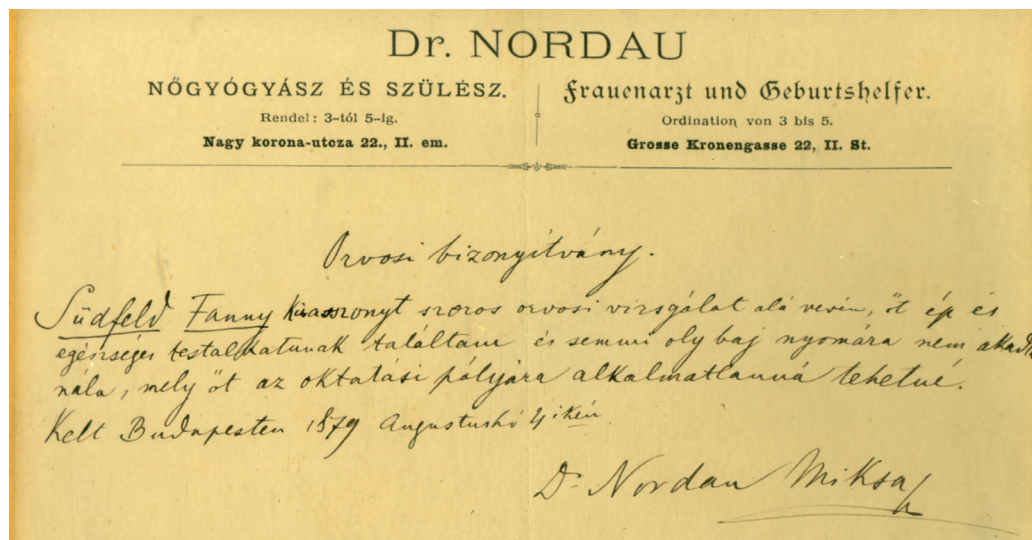 Dr. NORDAU
NŐGYÓGYÁSZ ÉS SZÜLÉSZ.
Rendel: 3-tól 5-ig.
Nagy korona-utcza 22., II. em.
Frauenarzt und Geburtshelfer.
Ordination von 3 bis 5.
Grosse Kronengasse 22, II. St.
Orvosi bizonyítvány.
Südfeld Fanny kisasszonyt szoros orvosi vizsgálat alá vevén, őt ép és
egészséges testalkatunak találtam és semmi oly baj nyomára nem akadtam
nála, mely őt az oktatási pályára alkalmatlanná tehetné.
Kelt Budapesten 1879 Augustushó 4ikén.
Dr Nordau Miksa